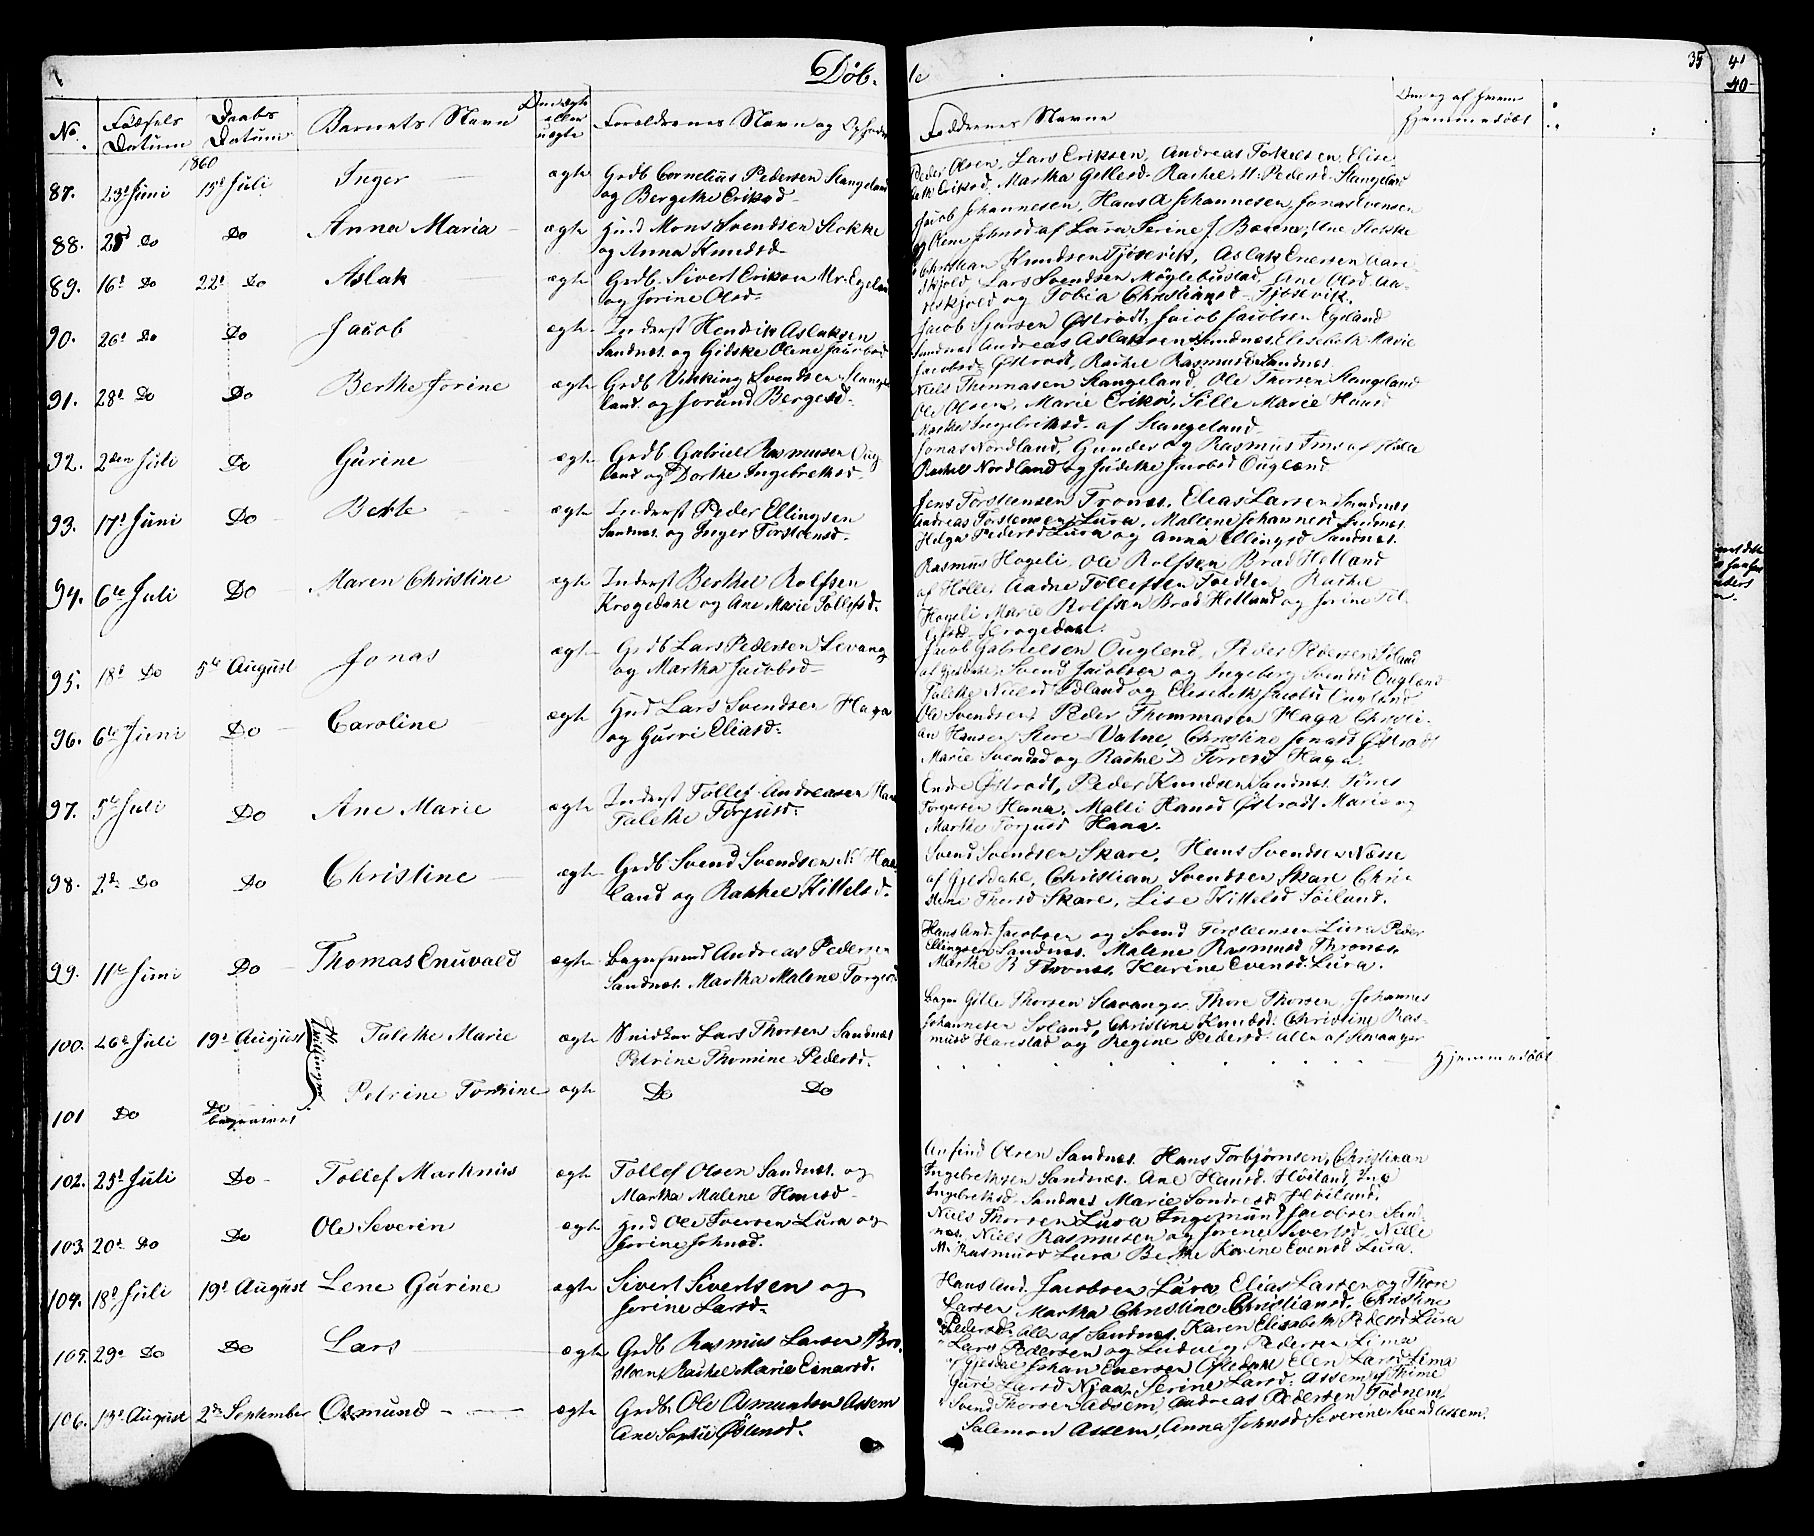 Døb-te
35
41
40
No. Fødsels Datum Daabs Datum Barnets Navn Om ægte eller uægte Forældrenes Navn og Faddrenes Navne Om eg af hjemmedøbt
1860
87. 23d Juni 15d Juli Inger ægte Grdb Cornelius Pedersen Stangeland
og Bergethe Eriksd
Peder Olsen, Lars Eriksen, Andreas Torkelsen, Elise-
beth Eriksd, Martha Gellesd. Rachel M. Pedersd. Stangeland
88. 25 Do Do Anna Maria ægte Hmd Mons Svendsen Stokke
og Anna Knudsd
Jacob Johannesen, Hans A Johannesen, Jonas Evensen
af Lura Serine J. Ane Stokke
89. 16d Do 22d Do Aslak ægte Grdb. Sivert Eriksen Nr. Egeland
og Jorine Olsd.
Christian Knudsen Tjøsevik, Aslak Enersen Aare-
skjold, Lars Svendsen Møglebustad, Ane Olsd Aa-
reskjold og Tobia Christiansd Tjøsevik.
90. 26d Do Do Jacob ægte Inderst Hendrik Aslaksen
Sandnæs og Gidske Olene Jacobsd
Jacob Sjursen Østrådt, Jacob Jacobsen Egeland
Sandnæs Andreas Aslaksen Sandnæs Elisebeth Marie
Jacobsd Østrådt, Rachel Rasmusd Sandnæs
91. 28d Do Do Berthe Jorine ægte Grdb Vikking Svendsen Stange-
land og Jorund Bergesd.
Niels Thommasen Stangeland, Ole Thorsen Stangeland
Ole Olsen, Marie Eriksd, Sille Marie Hansd
Ingebretsd. af Stangeland
92. 2den Juli Do Gurine ægte Grdb Gabriel Rasmusen Oug-
land og Dorthe Ingebrethsd.
Jonas Nordland, Gunder og Rasmus af Hølle
Rachel Nordland og Judithe Jacobsd Ougland
93. 17d Juni Do Berthe ægte Inderst Peder Ellingsen
Sandnæs og Inger Torstensd.
Jens Torstensen Tronæs, Elias Larsen Sandnæs
Andreas Torstensen Lura, Mallene Johannesd Sandnæs.
Helga Pedersd Lura og Anna Ellingsd Sandnæs.
94. 6te Juli Do Maren Christine ægte Inderst Berthel Rolfsen
Krogedahl og Ane Marie Tollefsd.
Rasmus Hogeli Ole Rolfsen Brad Hetland
af Hölle, Aadne Tollefsen Rachel
Hogeli Marie Rolfsen Brad Hetland og Jorine Tol-
lefsd Krogedal.
95. 18d Do 5te August Jonas ægte Grdb Lars Pedersen Levang
og Martha Jacobsd
Jacob Gabrielsen Ougland, Peder Pedersen
Svend Jacobsen og Ingeborg Svendsd Ougland
Talethe Nielsd Udland og Elisebeth Jacobsd Ougland
96. 6te Juni Do Caroline ægte Hmd Lars Svendsen Haga
og Gurri Eliasd.
Ole Svendsen, Peder Thommasen Haga Christi-
an Hansen Store Vatne, Christine Jonasd Østrådt
Marie Svendsd og Rachel D Torresd Haga
97. 5te Juli Do Ane Marie ægte Inderst Tollef Andreasen Hana
Talethe Torjusd.
Endre Østrådt, Peder Knudsen Sandnæs Tørres
Torgersen Hana, Malli Hansd Østrådt Marie og
Marthe Torjusd Hana.
98. 2d Do Do Christine ægte Grdb Svend Svendsen N. Haa-
land og Rakkel Kittelsd.
Svend Svendsen Skare, Hans Svendsen Næsse
af Gjesdahl, Christian Svendsen Skare Chri-
stine Thorsd Skare, Lise Kittelsd Söiland.
99. 11te Juni Do Thomas Enuvald ægte Bagersvend Andreas Pedersen
Sandnæs. Martha Malene Torgersd
Hans And. Jacobsen og Svend Torstensen Lura Peder
Ellingsen Sandnæs. Malene Rasmusd Thronæs
Marthe B Thronæs, Karine Evensd. Lura.
100. 26d Juli 19d August Tvillinger Talethe Marie ægte Snidker Lars Thorsen Sandnæs
Petrine Thomine Pedersd.
Bager Gitle Thorsen Stavanger, Thore Thorsen, Johannes
Johannesen Soland, Christine Knudsd. Christine Ras-
musd Harestad og Regine Pedersd. alle af Stavanger
101 Do Do Petrine Tomine ægte Do Do Hjemmedøbt
102. 25d Juli Do Tollef Markus ægte Tollef Olsen Sandnæs. og
Martha Malene Hansd
Anfind Olsen Sandnæs. Hans Torbjørnsen, Christian
Ingebrethsen Sandnæs. Ane Hansd. Høiland, Ine
Ingebrethsd. Sandnæs Marie Sondresd Høiland,
103. 20d Do Do Ole Severin ægte Hmd Ole Iversen Lura og
Jorine Johnsd.
Niels Thorsen Lura Ingemund Jacobsen Sand-
næs. Niels Rasmusen og Jorene Sivertsd. Nille
M. Rasmusd Lura Berthe Karine Evensd Lura.
104. 18d Juli 19d August Lene Gurine ægte Sivert Sivertsen og
Jorine Larsd.
Hans And. Jacobsen Lura, Elias Larsen og Thore
Larsen, Martha Christine Christiansd. Christine
Pedersd. alle af Sandnæs. Karen Elisabeth Pedersd Lura
105. 29d Do Do Lars ægte Grdb Rasmus Larsen Bro-
steen, Rachel Marie Einarsd.
Lars Pedersen og Ludvig Pedersen Lima
af Gjesdal Johan Evensen Oftedal Elen Larsd Lima
Guri Larsd Njaa, Serine Larsd. Assem af Thime
106. 13d August 2d September Osmund ægte Grdb. Ole Asmundsen Assem
Ane Sophie Østensd.
Svend Thorsen Assem, Andreas Pedersen Fodnem
Salemon Assem, Anna Johnsd Severine Svendsd Assem.